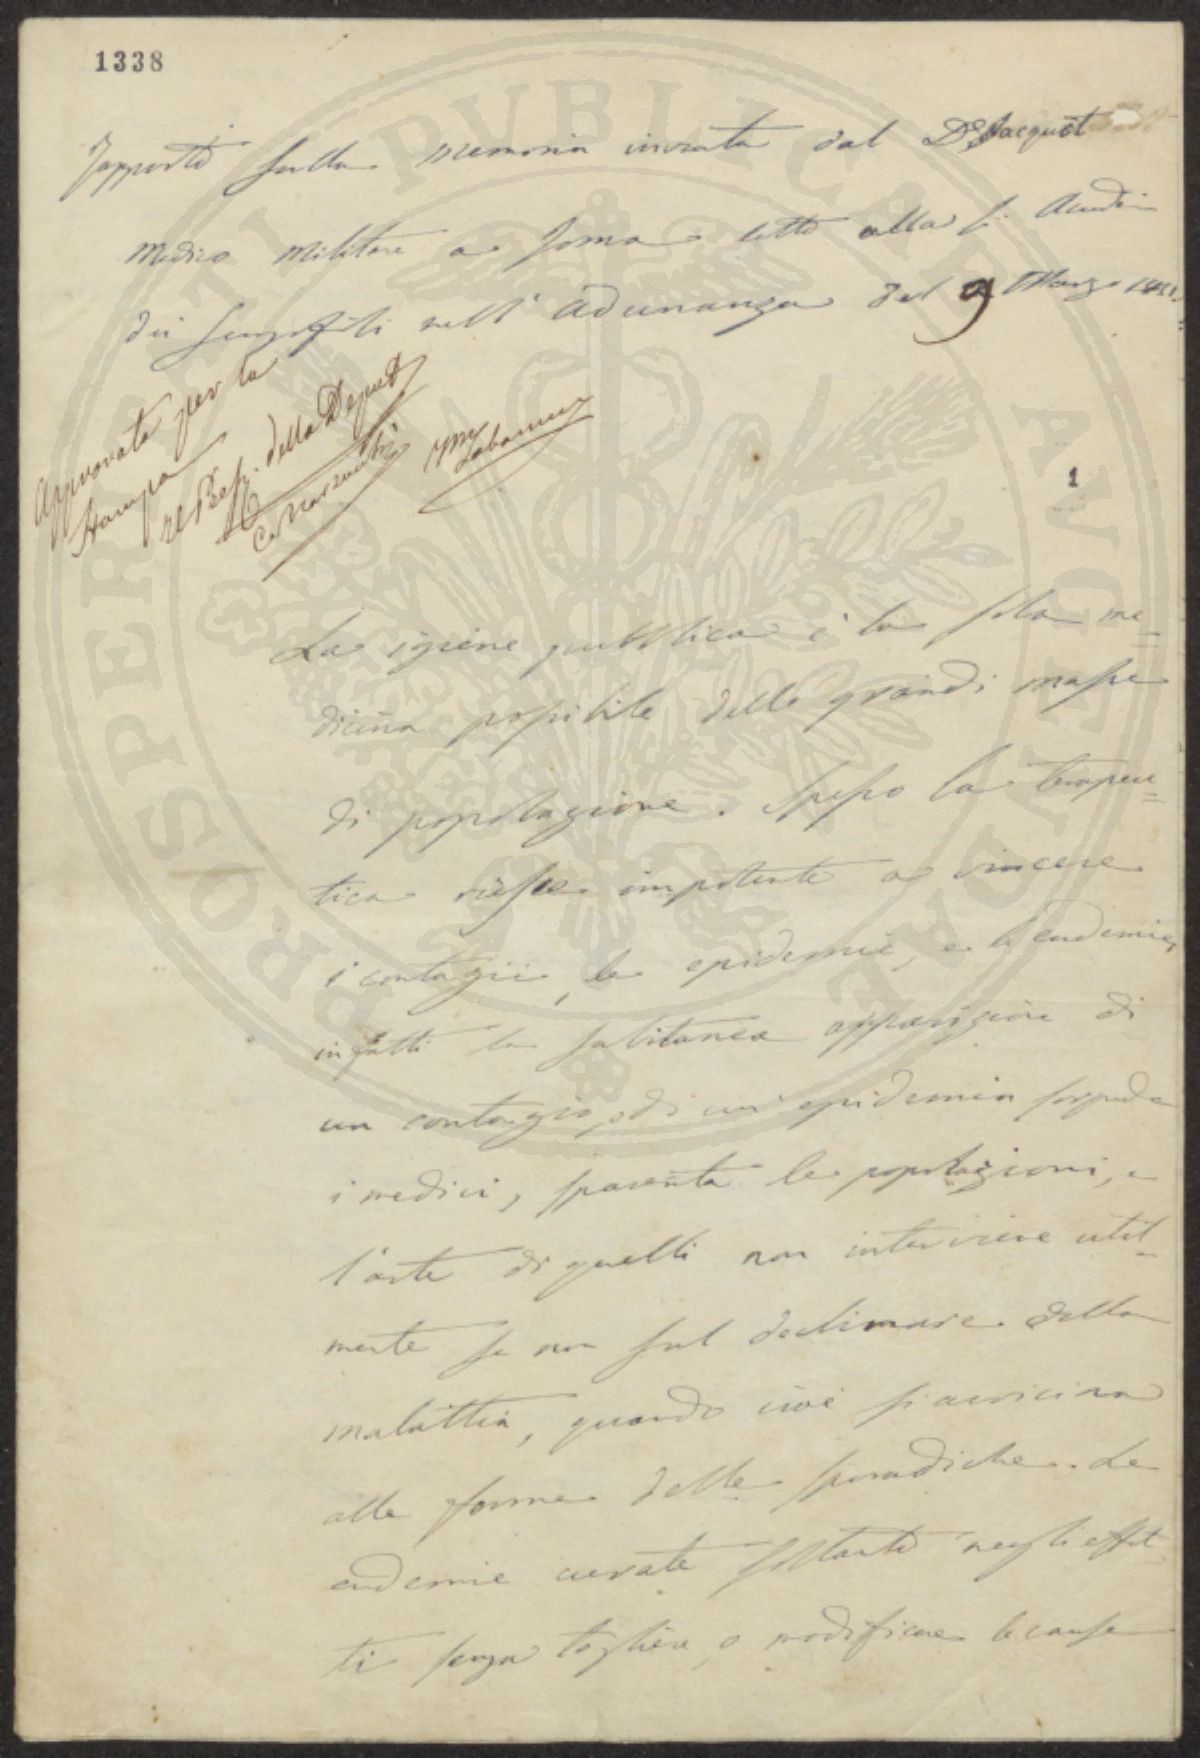 1338
Rapporto sulla memoria inviata dal Dr Jacquot
Medico Militare a Roma letto alla R. Accad.
dei Georgofili nell' adunanza del 9 Marzo
Approvato per la
Stampa
Il Pres. della Deput.
1
La igiene pubblica è la sola me=
dicina possibile delle grandi masse
di popolazione. Spesso la terapeu=
tica riesce impotente a vincere
i contagii, le epidemie, e le endemie,
infatti la subitanea apparizione di
un contagio, o di un' epidemia sorprende
i medici, spaventa le popolazioni, e
l'arte di quelli non interviene util=
mente se non sul declinare della
malattia, quando cioè si avvicina
alle forme delle sporadiche. Le
endemie curate soltanto negli effet
ti senza togliere, o modificare le cause
PROSPERITATI PUBLICAE AUGENDAE